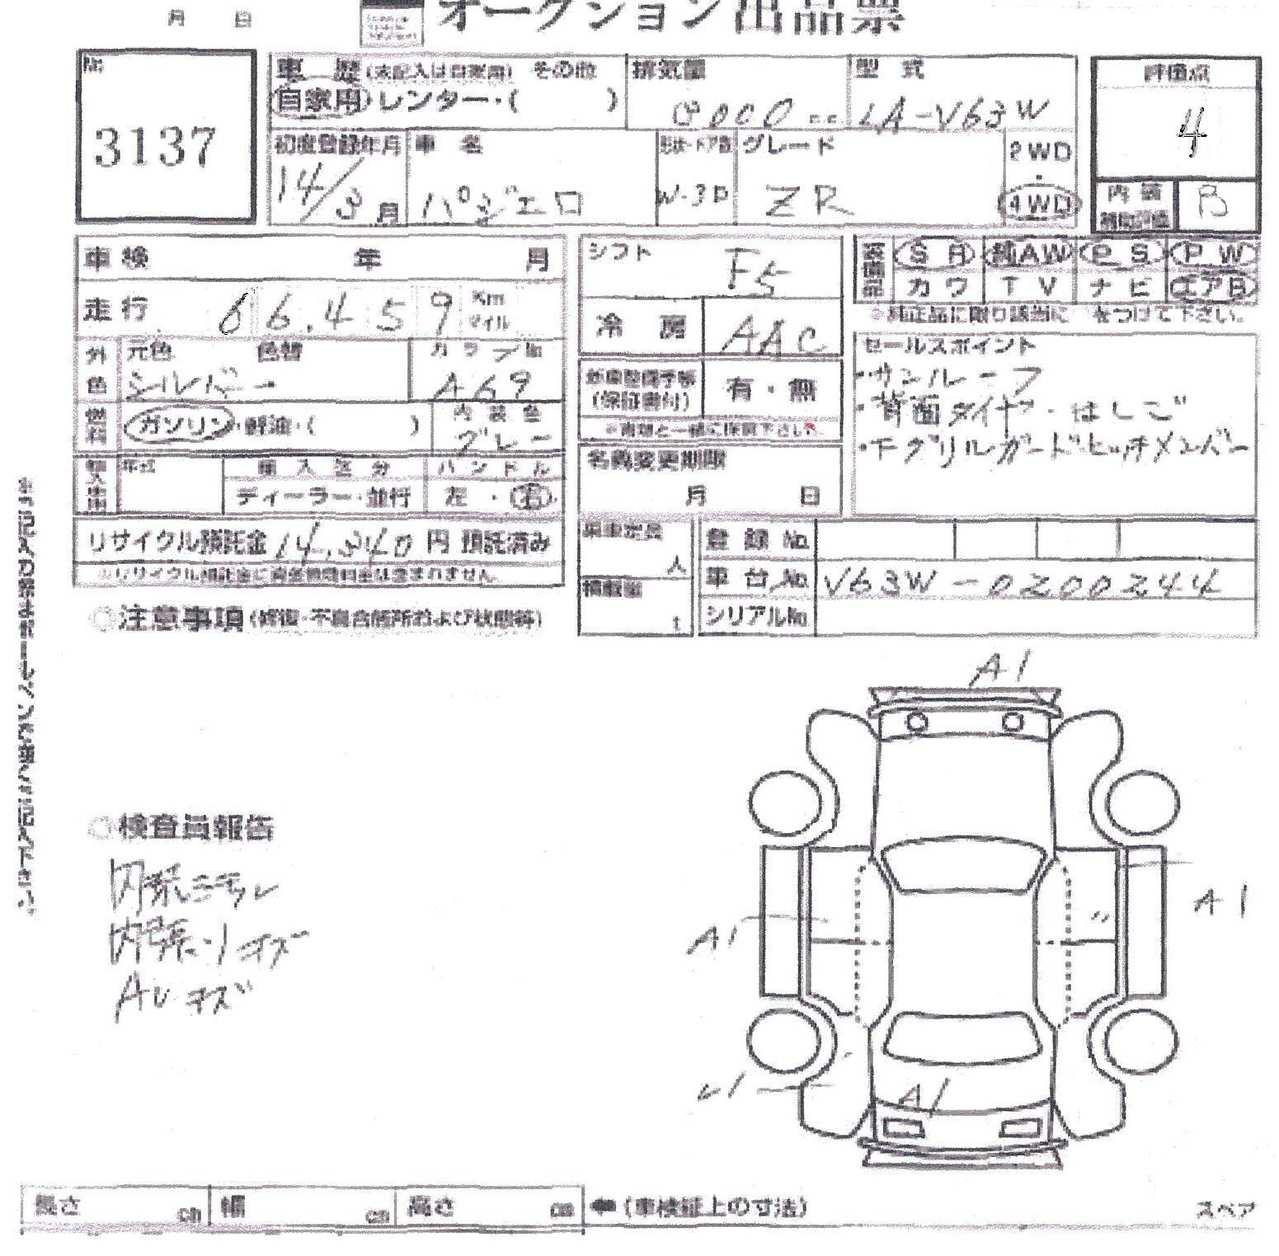 月 日
オークション出品票
No.
3137
車歴 (未記入は自家用) その他
自家用 レンター・( )
排気量
cc
型式
LA-V63W
評価点
4
初度登録年月
14/3月
車名
パジェロ
形状・ドア数
W・3D
グレード
ZR
2WD
・
4WD
内装
補助評価
B
車検 年 月
シフト
F5
装備品
SR 純AW PS PW
カワ TV ナビ エアB
※純正品に限り該当に をつけて下さい。
走行
66,459
Km
マイル
冷房
AAC
外色
元色 色替
シルバー
カラーNo.
A69
新車整備手帳
(保証書付)
有・無
※書類と一緒に保管下さい
セールスポイント
・サンルーフ
・背面タイヤ・はしご
・ ヒッチメンバー
燃料
ガソリン・軽油・( )
内装色
グレー
名義変更期限
月 日
輸入車用
年式
輸入区分
ディーラー・並行
ハンドル
左・右
リサイクル預託金 14,340円 預託済み
※リサイクル預託金に資金管理料金は含まれません
乗車定員
人
積載量
t
登録No.
車台No. V63W-0200244
シリアルNo.
○注意事項 (修復・不具合箇所および状態等)
A1
○検査員報告
A1
A1
A1
長さ cm 幅 cm 高さ cm ←(車検証上の寸法)
スペア